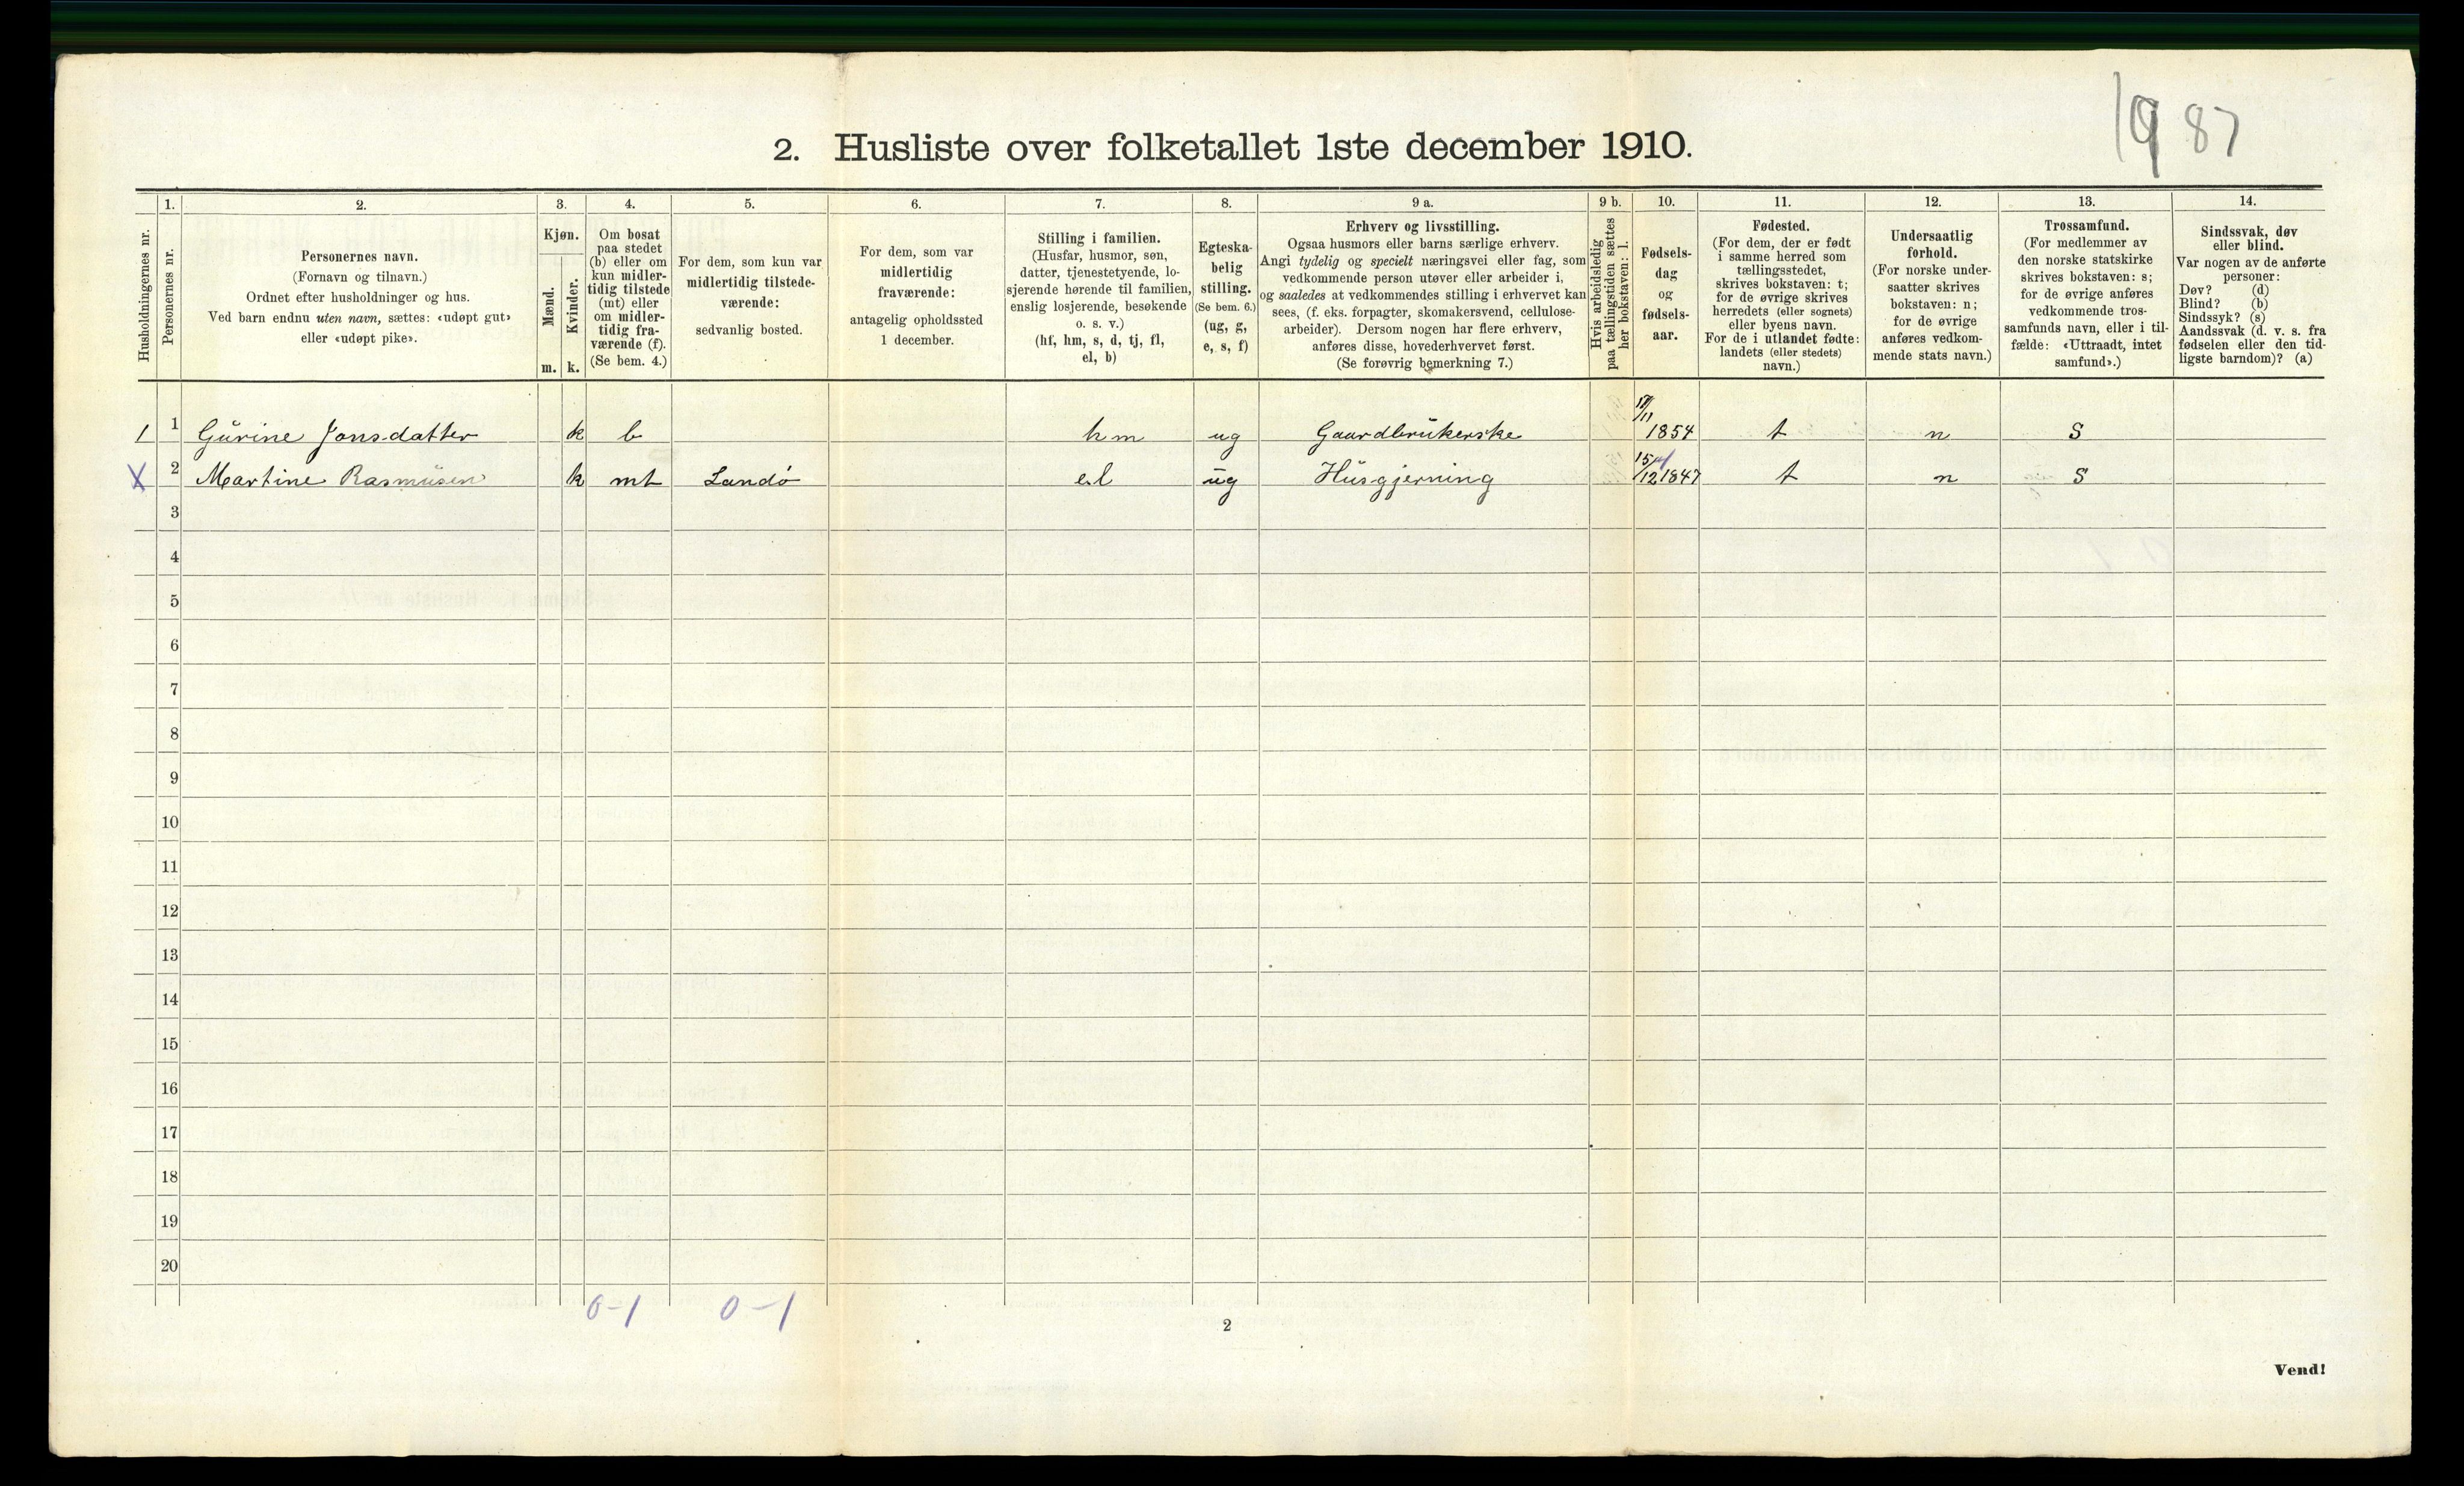 1987
2. Husliste over folketallet 1ste december 1910.
Husholdningernes nr.
1.
Personernes nr.
2.
Personernes navn.
(Fornavn og tilnavn.)
Ordnet efter husholdninger og hus.
Ved barn endnu uten navn, sættes: «udøpt gut»
eller «udøpt pike».
3.
Kjøn.
Mænd.
m.
Kvinder.
k.
4.
Om bosat
paa stedet
(b) eller om
kun midler-
tidig tilstede
(mt) eller
om midler-
tidig fra-
værende (f).
(Se bem. 4.)
5.
For dem, som kun var
midlertidig tilstede-
værende:
sedvanlig bosted.
6.
For dem, som var
midlertidig
fraværende:
antagelig opholdssted
1 december.
7.
Stilling i familien.
(Husfar, husmor, søn,
datter, tjenestetyende, lo-
sjerende hørende til familien,
enslig losjerende, besøkende
o. s. v.)
(hf, hm, s, d, tj, fl,
el, b)
8.
Egteska-
belig
stilling.
(Se bem. 6.)
(ug, g,
e, s, f)
9 a.
Erhverv og livsstilling.
Ogsaa husmors eller barns særlige erhverv.
Angi tydelig og specielt næringsvei eller fag, som
vedkommende person utøver eller arbeider i,
og saaledes at vedkommendes stilling i erhvervet kan
sees, (f. eks. forpagter, skomakersvend, cellulose-
arbeider). Dersom nogen har flere erhverv,
anføres disse, hovederhvervet først.
(Se forøvrig bemerkning 7.)
9 b.
Hvis arbeidsledig
paa tællingstiden sættes
her bokstaven: l.
10.
Fødsels-
dag
og
fødsels-
aar.
11.
Fødested.
(For dem, der er født
i samme herred som
tællingsstedet,
skrives bokstaven: t;
for de øvrige skrives
herredets (eller sognets)
eller byens navn.
For de i utlandet fødte:
landets (eller stedets)
navn.)
12.
Undersaatlig
forhold.
(For norske under-
saatter skrives
bokstaven: n;
for de øvrige
anføres vedkom-
mende stats navn.)
13.
Trossamfund.
(For medlemmer av
den norske statskirke
skrives bokstaven: s;
for de øvrige anføres
vedkommende tros-
samfunds navn, eller i til-
fælde: «Uttraadt, intet
samfund».)
14.
Sindssvak, døv
eller blind.
Var nogen av de anførte
personer:
Døv? (d)
Blind? (b)
Sindssyk? (s)
Aandssvak (d. v. s. fra
fødselen eller den tid-
ligste barndom)? (a)
1 1 Gurine Jonsdatter k b hm ug Gaardbrukerske 1854 t n S
X 2 Martine Rasmusen k mt Landö el ug Husgjerning 15/12 1847 t n S
3
4
5
6
7
8
9
10
11
12
13
14
15
16
17
18
19
20
0-1 0-1
2
Vend!